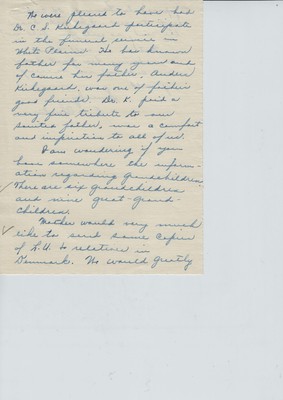 We were pleased to have had
Dr. C. S. Kirkegaard participate
in the funeral service in
White Plains. He has known
father for many years and
of course his father, Anders
Kirkegaard, was one of father's
good friends. Dr. K. paid a
very fine tribute to our
sainted father, was a comfort
and inspiration to all of us.
I am wondering if you
have somewhere the inform-
ation regarding grandchildren.
There are six grandchildren
and nine great-grand-
children.
Mother would very much
like to send some copies
of L.U. to relatives in
Denmark. We would greatly